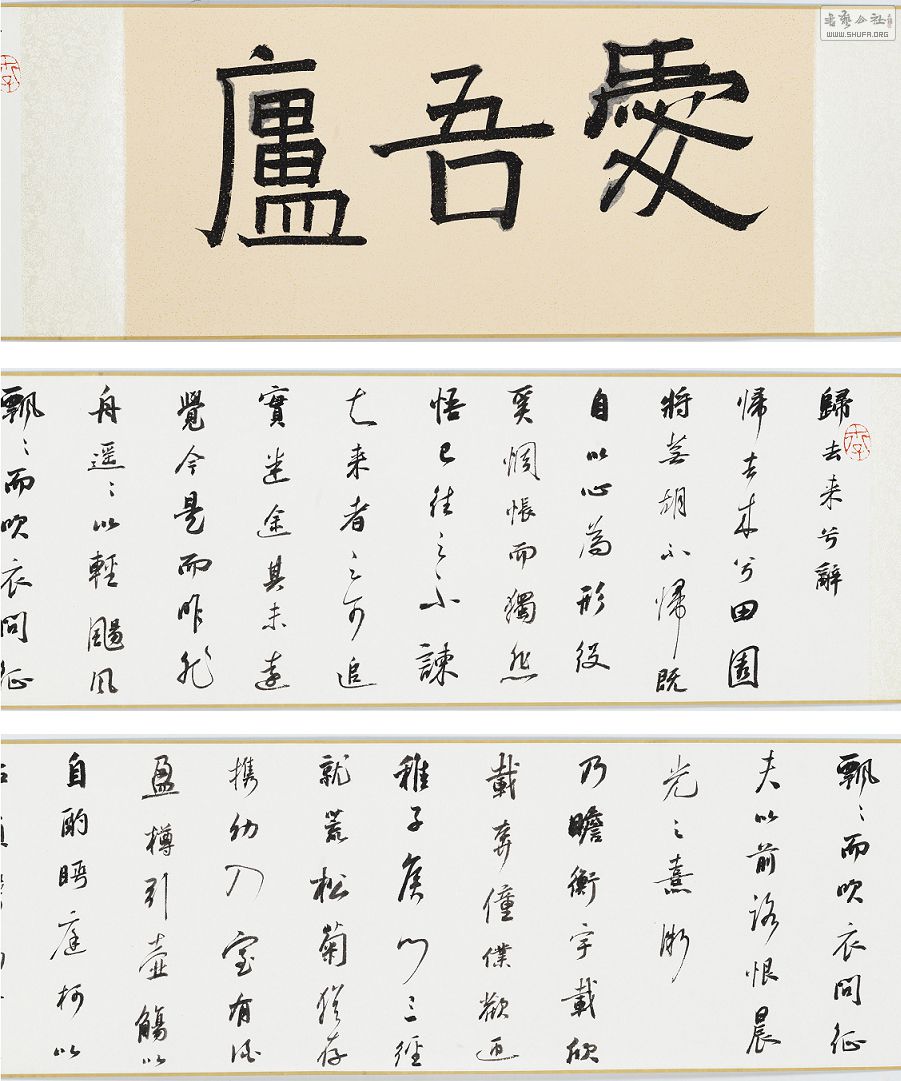 愛吾廬
歸去来兮辭
歸去来兮田園
將蕪胡不歸既
自以心為形役
奚惆悵而獨悲
悟已往之不諫
知来者之可追
實迷途其未遠
覺今是而昨非
舟遥〻以輕颺風
飄〻而吹衣問征
飄〻而吹衣問征
夫以前路恨晨
光之熹微
乃瞻衡宇載欣
載奔僮僕歡迎
稚子候門三徑
就荒松菊猶存
攜幼入室有酒
盈樽引壺觴以
自酌眄庭柯以
书艺公社
WWW.SHUFA.ORG